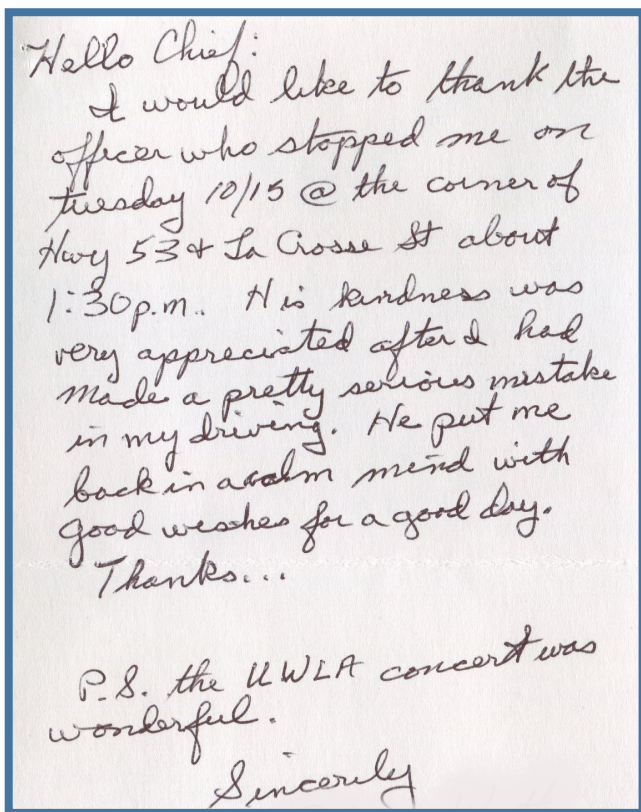 Hello Chief:
I would like to thank the
officer who stopped me on
tuesday 10/15 @ the corner of
Hwy 53 & La Crosse St about
1:30 p.m. His kindness was
very appreciated after I had
made a pretty serious mistake
in my driving. He put me
back in a calm mind with
good wishes for a good day.
Thanks...
P.S. the UWLA concert was
wonderful.
Sincerily